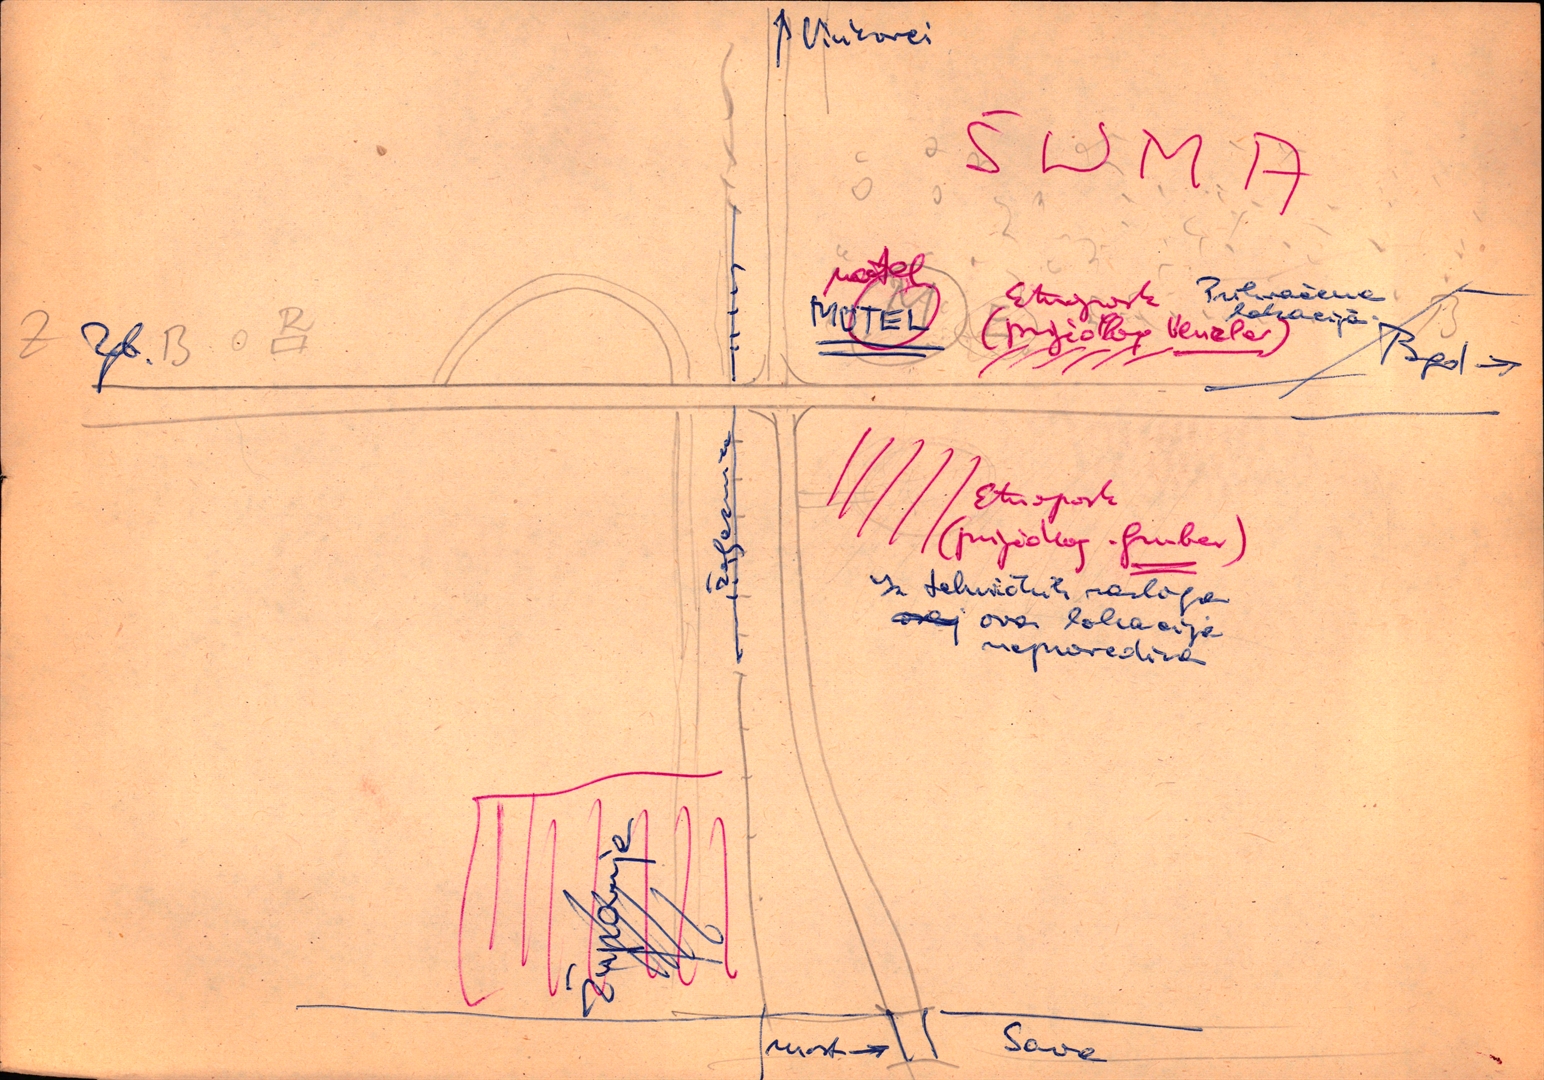 Vinkovci
ŠUMA
motel
MOTEL
Etnopark
(prijedlog Kenzler)
Prihvaćena
lokacija
Z
Zgb.
B
B
B
Bgd →
Željeznica
Etnopark
(prijedlog Gruber)
Iz tehničkih razloga
ova lokacija
neprovediva
Županje
most →
Sava